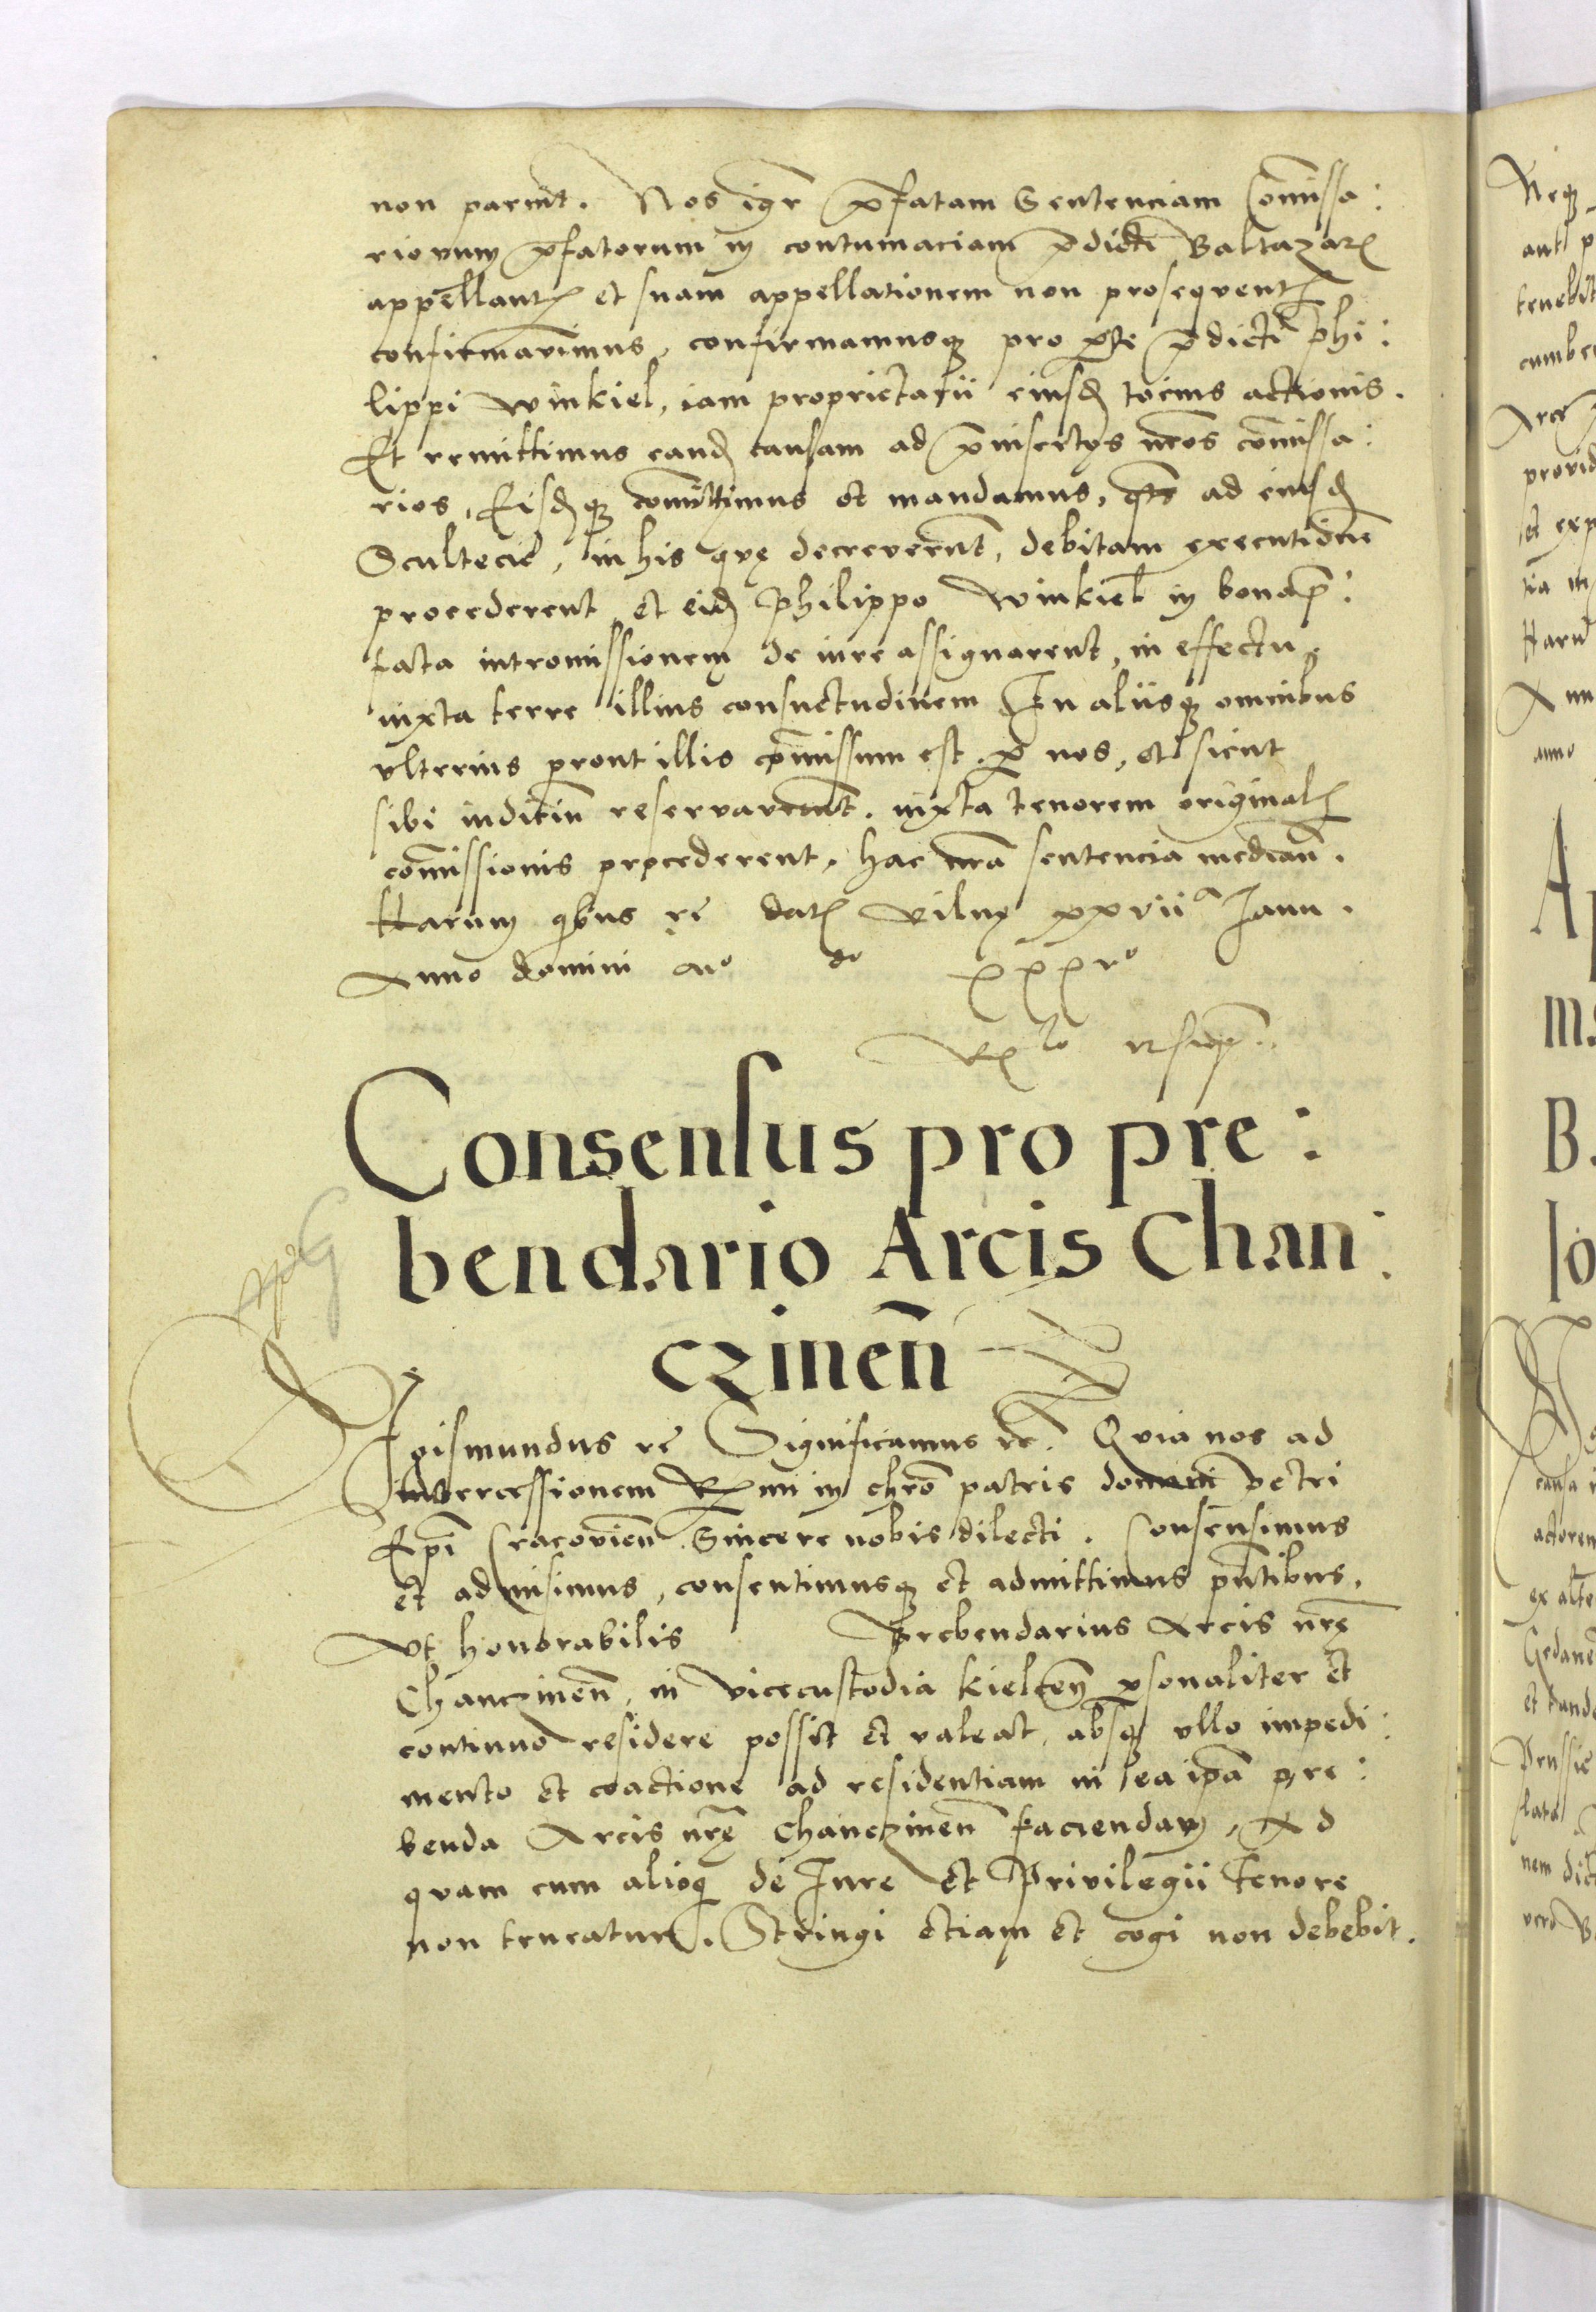 non paruit. Nos igr̄ p̄fatam Sentenciam Com̄issa:
riorum p̄fatorum in contumaciam p̄dicti Baltazaris
appellantis et suam appellationem non prosequentis
confirmavimus, confirmamusq̨ pro parte p̄dicti Phi:
lippi Winkiel, iam proprietarii eiusd̄ tocius actionis.
Et remittimus eand̄ causam ad p̄insertos n̄ros com̄issa:
rios, Eisd̄q̨ com̄ittimus et mandamus, qts ad eiusd̄
Scultecie, in his quę decreverunt, debitam executionē
procederent et eid̄ Philippo Winkiel in bona p̄:
fata intromissionem de iure assignarent, in effectu
iuxta terre illius consuetudinem In aliisq̨ omnibus
ulterius prout illis com̄issum est. per nos, et sicut
sibi iuditiū reservaverunt. iuxta tenorem originalis
com̄issionis procederent, hac n̄ra sentencia mediañ.
Harum q̄bus rc̄ Datis Vilnę xxvii a Janu.
Anno domini Mo do xxxvo
Consensus pro pre:
bendario Arcis Chan:
czinen̄
Sigismundus rc̄ Significamus rc̄. Quia nos ad
intercessionem Rmi in chro patris domini Petri
Ep̄i Cracovien̄. Sincere nobis dilecti. Consensimus
et admisimus, consentimusq̨ et admittimus pn̄tibus,
Ut honorabilis Prebendarius Arcis nr̄ę
Chanczinen̄, in Vicecustodia Kielcen̄ personaliter et
continuo residere possit et valeat, absq̨ ullo impedi:
mento et coactione ad residentiam in ea ip̄a pre:
benda Arcis nr̄ę Chanczinen̄ faciendam, Ad
quam cum alioq de Iure et Privilegii tenore
non teneatur. Stringi etiam et cogi non debebit.